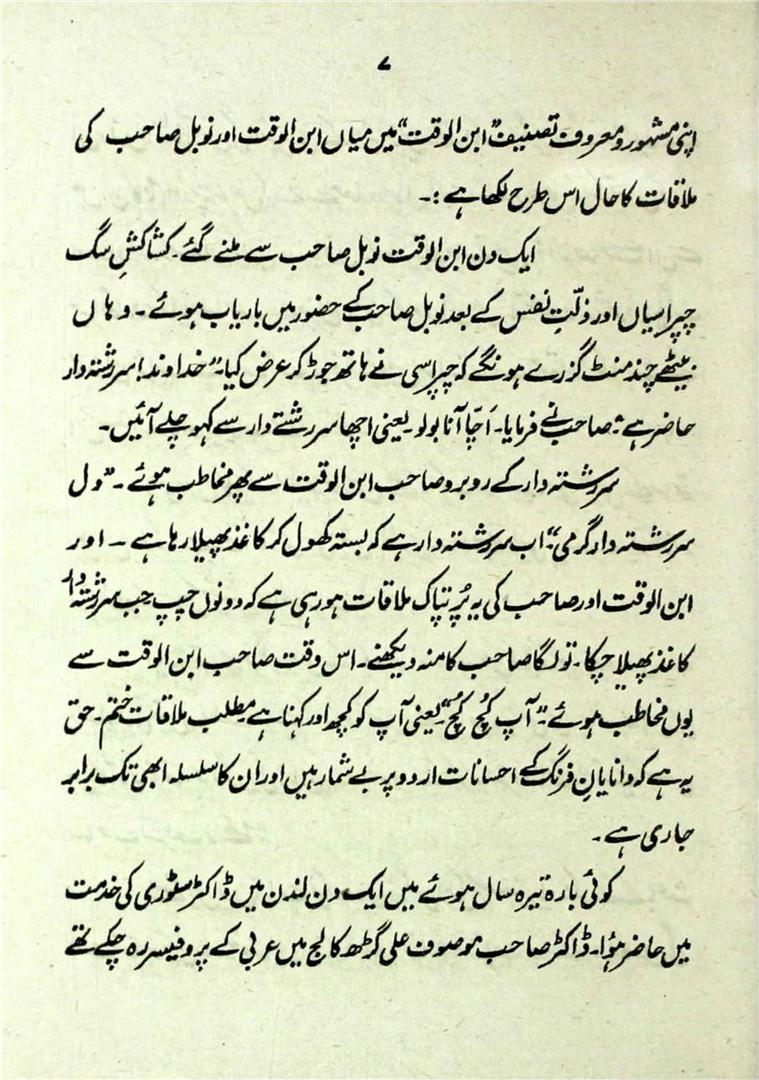 ۷
اپنی مشہور و معروف تصنیف "ابن الوقت" میں میاں ابن الوقت اور نوبل صاحب کی
ملاقات کا حال اس طرح لکھا ہے :۔
ایک دن ابن الوقت نوبل صاحب سے ملنے گئے۔ کشاکشِ سگ
چپراسیاں اور ذلّتِ نفس کے بعد نوبل صاحب کے حضور میں باریاب ہوئے۔ وہاں
بیٹھے چند منٹ گزرے ہونگے کہ چپراسی نے ہاتھ جوڑ کر عرض کیا۔ "خداوند! سررشتہ دار
حاضر ہے" صاحب نے فرمایا۔ اَچّا آنا بولو۔ یعنی اچھا سررشتے دار سے کہو چلے آئیں۔
سررشتہ دار کے روبرو صاحب ابن الوقت سے پھر مخاطب ہوئے۔ "ول
سررشتہ دار گرمی" اب سررشتہ دار ہے کہ بستہ کھول کر کاغذ پھیلا رہا ہے ۔ اور
ابن الوقت اور صاحب کی یہ پُرتپاک ملاقات ہو رہی ہے کہ دونوں چپ جب سررشتہ دار
کاغذ پھیلا چکا۔ تو لگا صاحب کا منہ دیکھنے۔ اس وقت صاحب ابن الوقت سے
یوں مخاطب ہوئے۔ "آپ کُچ کُچ" یعنی آپ کو کچھ اور کہنا ہے مطلب ملاقات ختم۔ حق
یہ ہے کہ دانایانِ فرنگ کے احسانات اردو پر بے شمار ہیں اور ان کا سلسلہ ابھی تک برابر
جاری ہے۔
کوئی بارہ تیرہ سال ہوئے میں ایک دن لندن میں ڈاکٹر سٹوری کی خدمت
میں حاضر ہؤا۔ ڈاکٹر صاحب موصوف علی گڑھ کالج میں عربی کے پروفیسر رہ چکے تھے